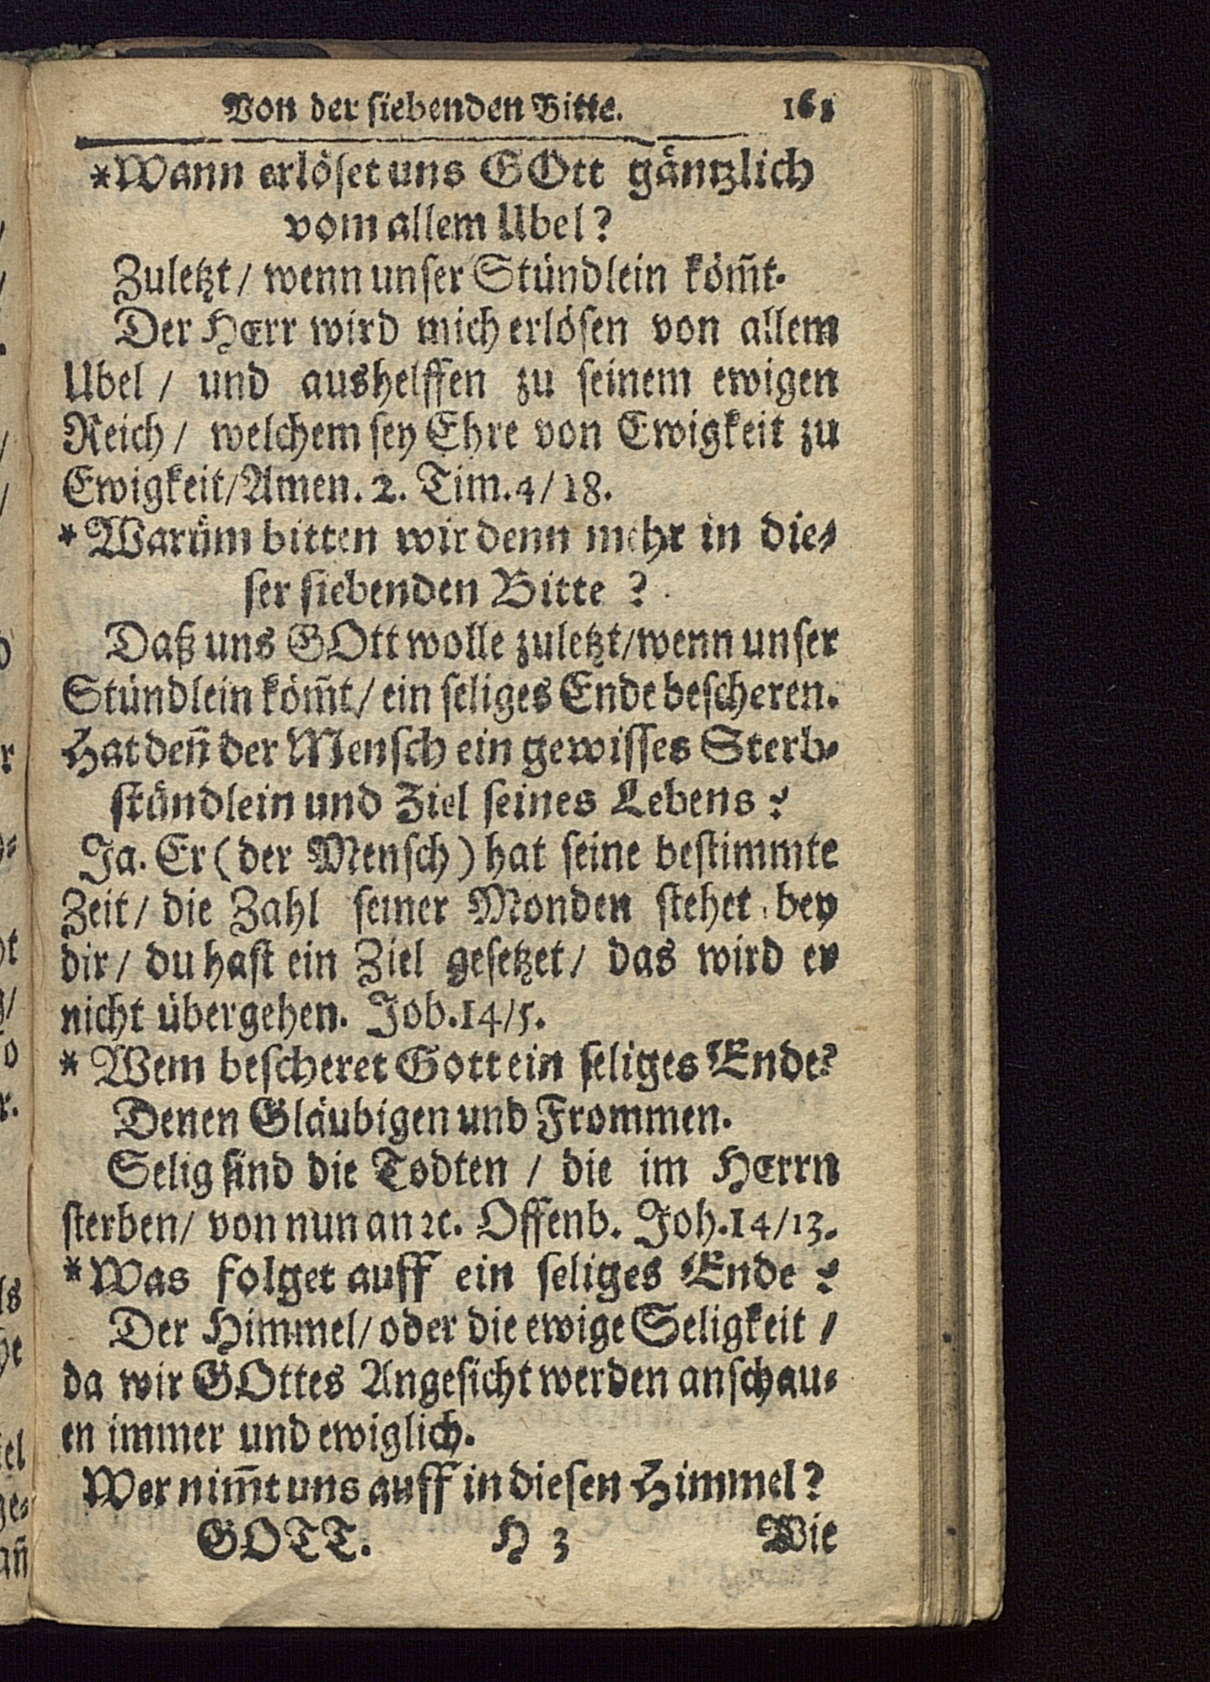 Von der siebenden Bitte.
*Wann erlöset uns GOtt gäntzlich
vom allem Ubel?
Zuletzt / wenn unser Stündlein köm̃t.
Der HErr wird mich erlösen von allem
Ubel / und aushelffen zu seinem ewigen
Reich / welchem sey Ehre von Ewigkeit zu
Ewigkeit/Amen. 2. Tim.4/18.
* Warüm bitten wir denn mehr in die-
ser siebenden Bitte ?
Daß uns GOtt wolle zuletzt/wenn unser
Stündlein köm̃t/ ein seliges Ende bescheren.
Hat deñ der Mensch ein gewisses Sterb-
stündlein und Ziel seines Lebens?
Ja. Er (der Mensch) hat seine bestimmte
Zeit / die Zahl seiner Monden stehet bey
dir / du hast ein Ziel gesetzet / das wird er
nicht übergehen. Job.14/5.
* Wem bescheret Gott ein seliges Ende?
Denen Gläubigen und Frommen.
Selig sind die Todten / die im HErrn
sterben/ von nun an ꝛc. Offenb. Joh.14/13.
*Was folget auff ein seliges Ende ?
Der Himmel/ oder die ewige Seligkeit /
da wir GOttes Angesicht werden anschau-
en immer und ewiglich.
Wer nim̃t uns auff in diesen Himmel?
GOTT. H 3 Wie